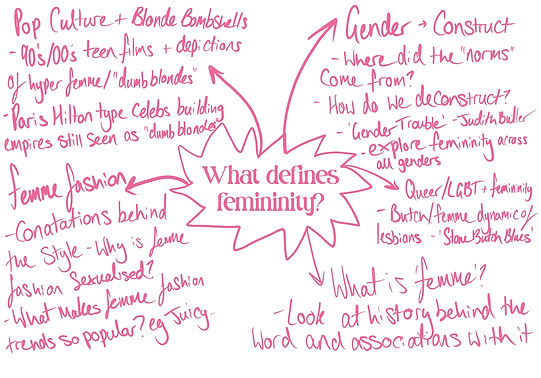 Pop Culture + Blonde Bombshells
- 90's/00's teen films + depictions
of hyper femme/"dumb blondes"
- Paris Hilton type Celebs building
empires still seen as "dumb blondes"
femme fashion
- Conatations behind
the Style - Why is femme
fashion Sexualised?
- What makes femme fashion
trends so popular? eg Juicy..
What defines
femininity?
Gender → Construct
- Where did the "norms"
Come from?
- How do we deconstruct?
- 'Gender Trouble' - Judith Butler
- explore femininity across
all genders
Queer/LGBT + femininity
- Butch/femme dynamic of
lesbians - 'Stone Butch Blues'
What is 'femme'?
- Look at history behind the
Word and associations with it